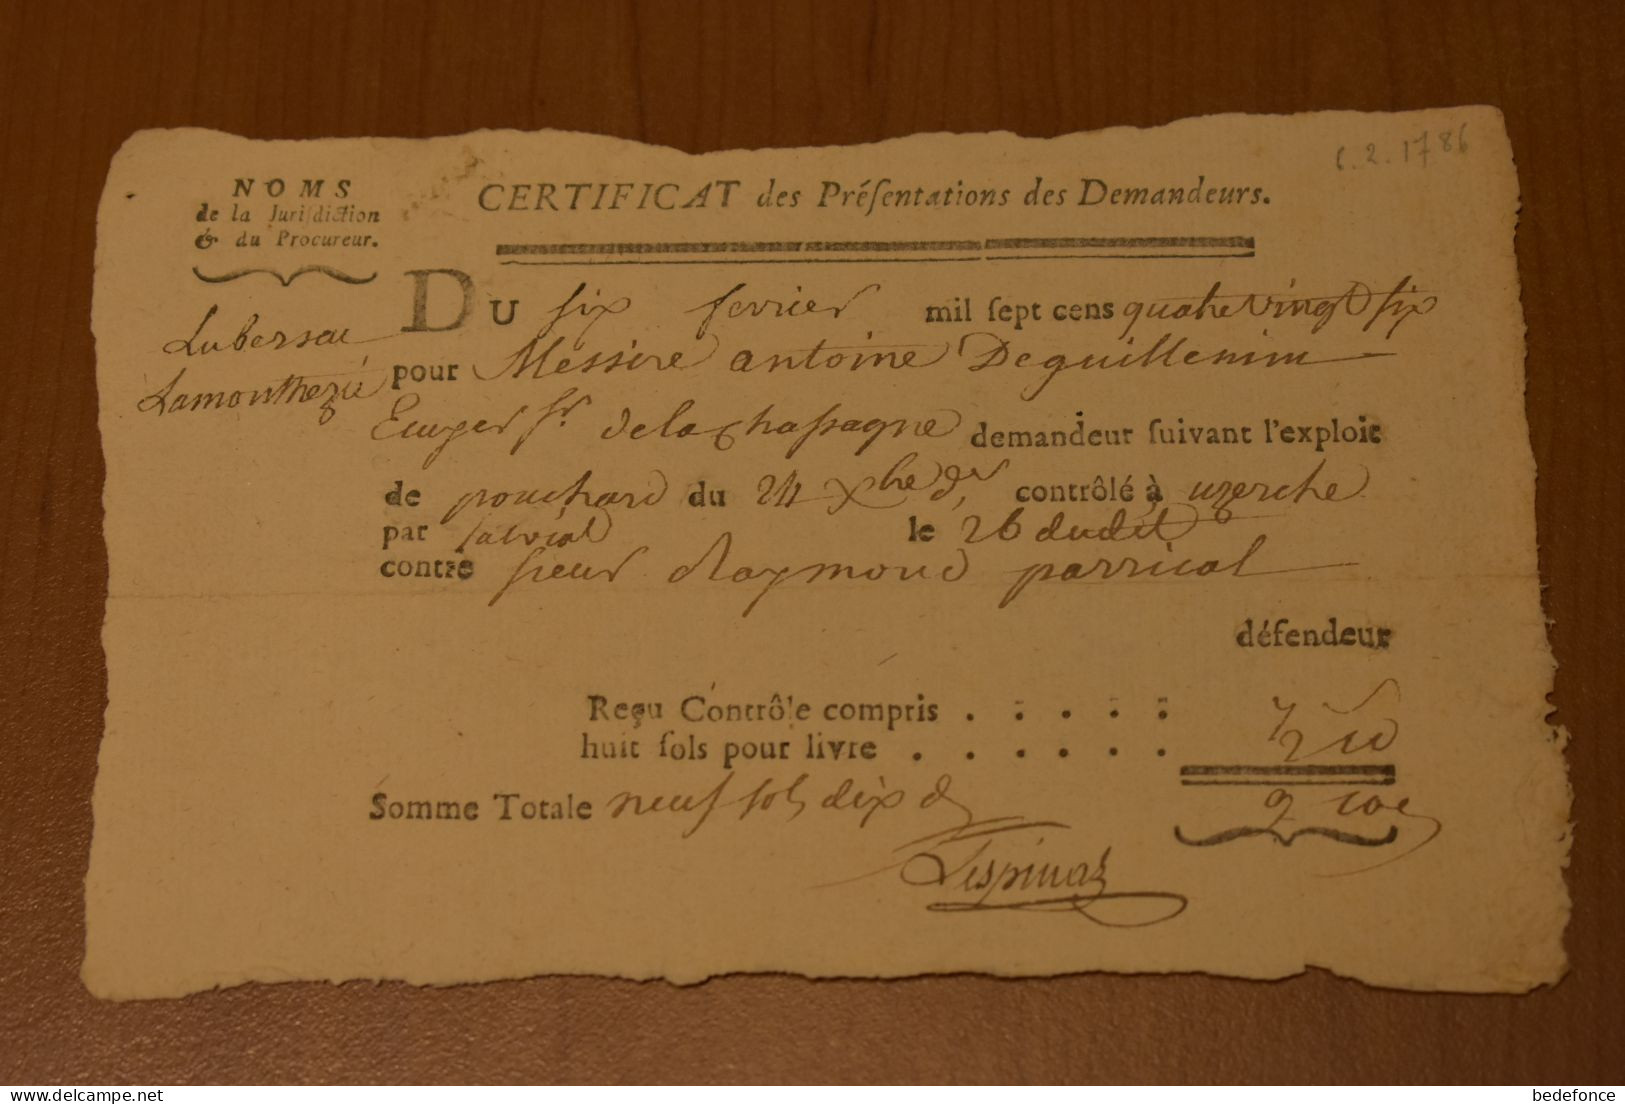 6.2.1786
NOMS
de la Jurisdiction
& du Procureur.
CERTIFICAT des Préſentations des Demandeurs.
Lubersac
Lamonthezie
DU six fevrier mil ſept cens quatre vingt six
pour Messire antoine Deguillemin
Ecuyer Sr. delachassagne demandeur ſuivant l'exploit
de pouchard du 24 Xbre dr contrôlé à uzerche
par le 26 dudit
contre sieur Raymond parrical
défendeur
Reçu Contrôle compris . . . . . 7
huit ſols pour livre . . . . . . 2 10
Somme Totale neuf sols dix d 9 10
Lespinas
delcampe.net
bedefonce